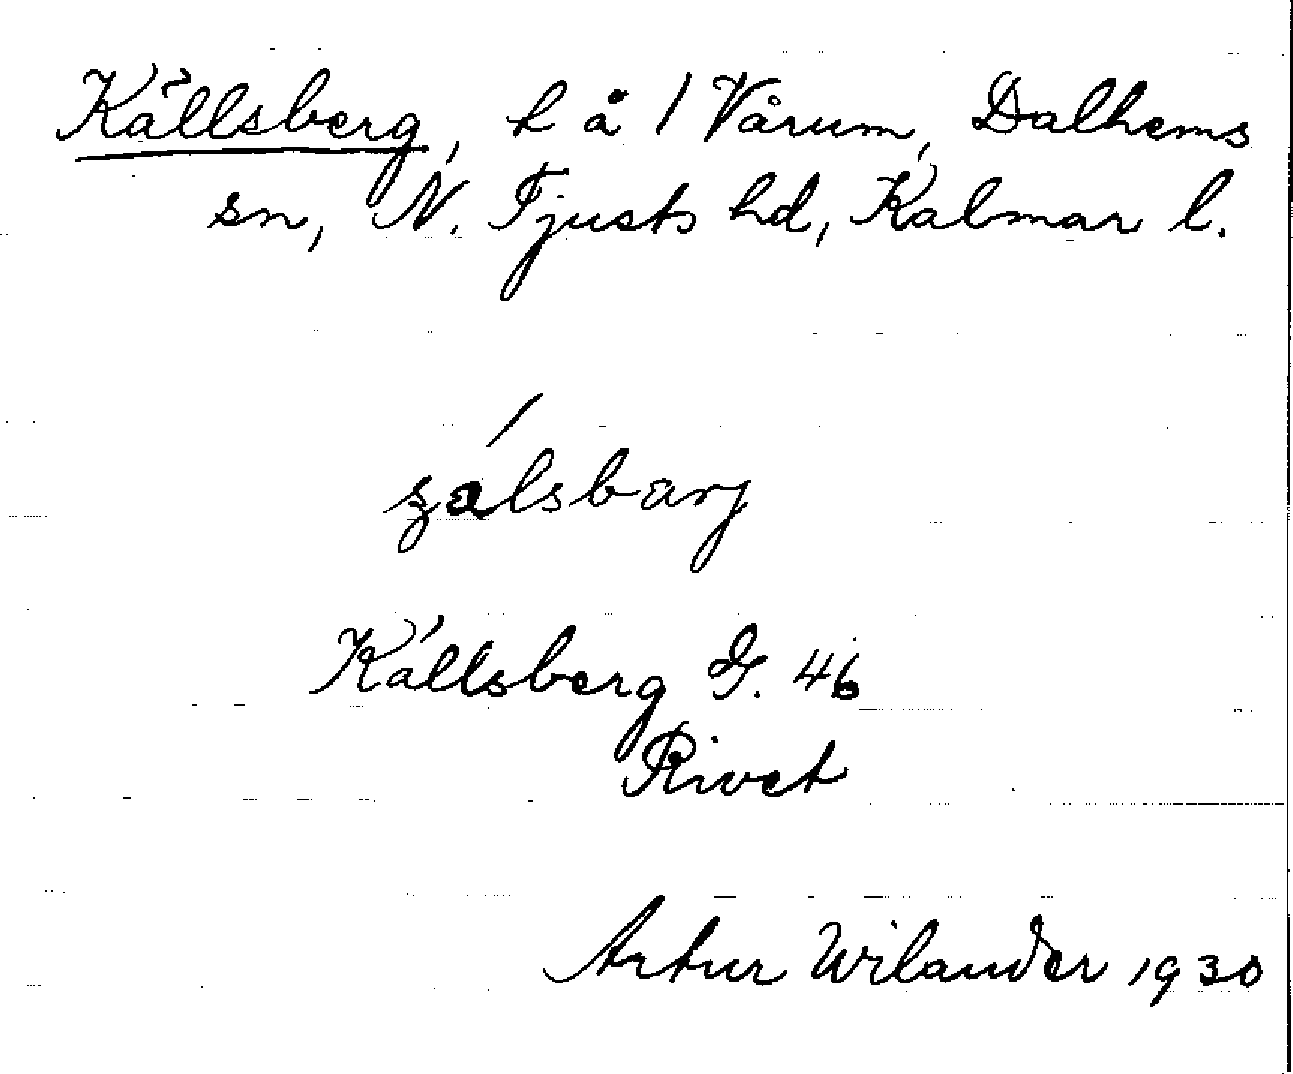 Källsberg, h å 1 Vårum, Dalhems
sn, N. Tjusts hd, Kalmar l.
Källsberg G. 46
Rivet
Artur Wilander 1930